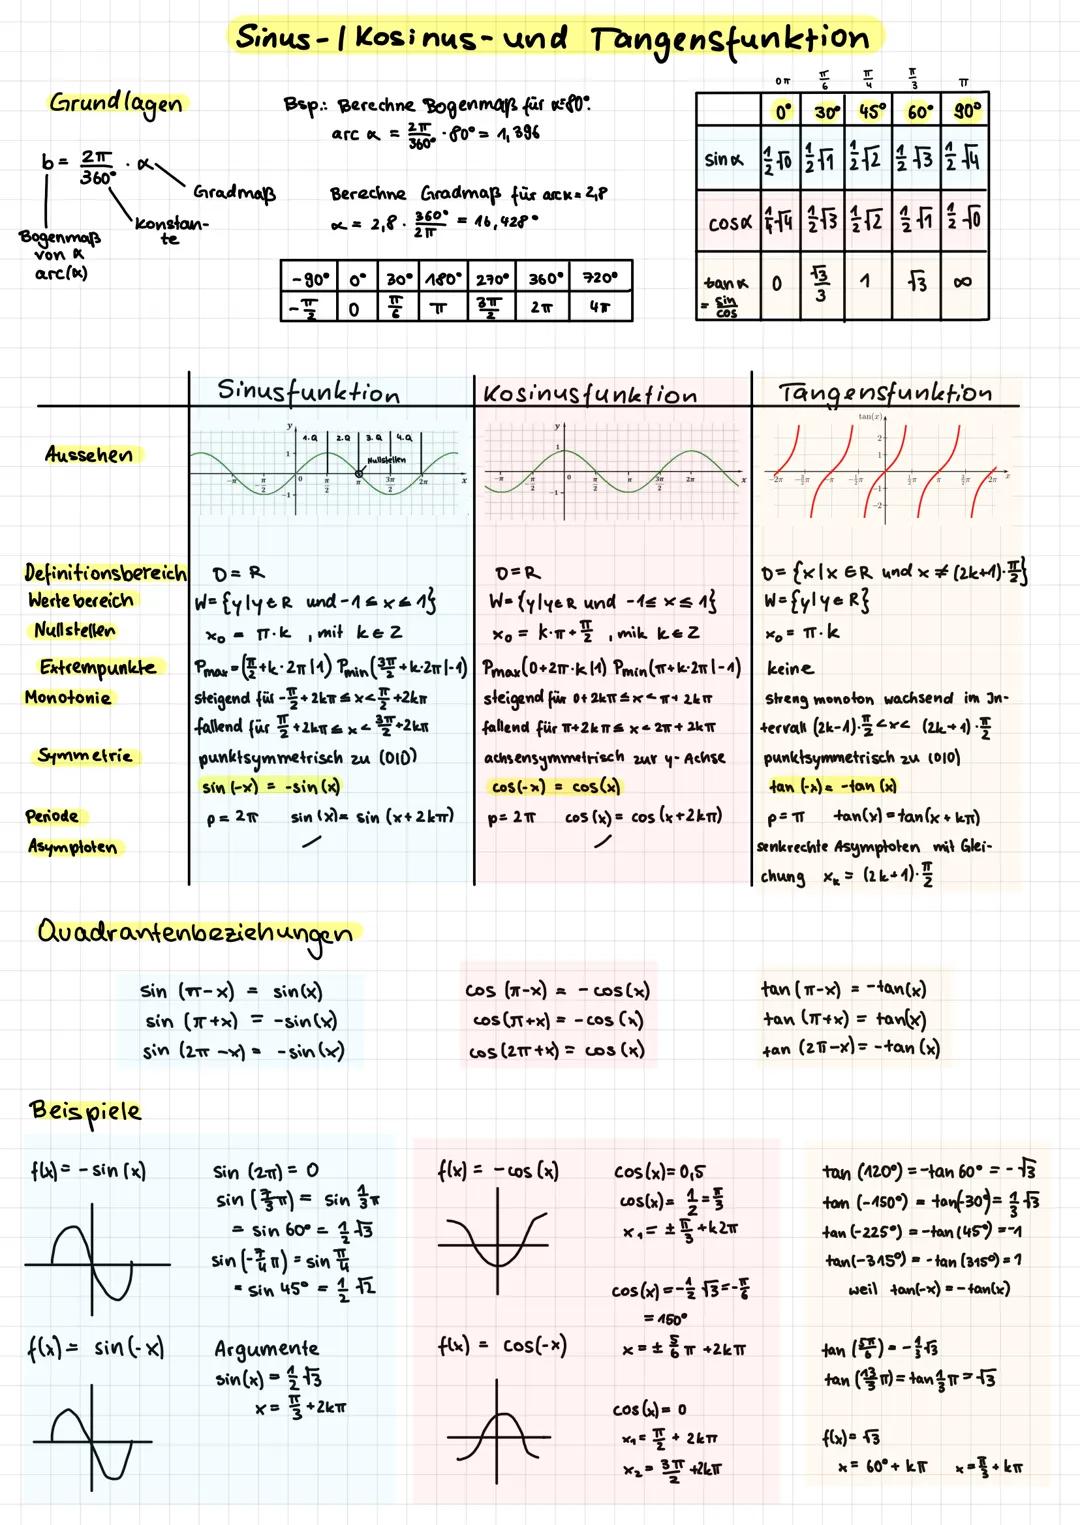 Sinus-/Kosinus- und Tangensfunktion
Grundlagen
b = 2π/360° · α
Gradmaß
Konstante
Bogenmaß von α arc(α)
Bsp.: Berechne Bogenmaß für α=80°.
arc α = 2π/360° · 80° = 1,396
Berechne Gradmaß für arcα = 2,8
α = 2,8 · 360°/2π = 16,428°
-90° 0° 30° 180° 270° 360° 720°
-π/2 0 π/6 π 3π/2 2π 4π
0π π/6 π/4 π/3 π
0° 30° 45° 60° 90°
sinα 1/2√0 1/2√1 1/2√2 1/2√3 1/2√4
cosα 1/4√4 1/2√3 1/2√2 1/2√1 1/2√0
tanα = sin/cos 0 √3/3 1 √3 ∞
Sinusfunktion Kosinusfunktion Tangensfunktion
Aussehen
1.Q 2.Q 3.Q 4.Q
Nullstellen
tan(x)
Definitionsbereich D = R D = R D = {x|x ∈ R und x ≠ (2k+1)·π/2}
Wertebereich W = {y|y ∈ R und -1 ≤ x ≤ 1} W = {y|y ∈ R und -1 ≤ x ≤ 1} W = {y|y ∈ R}
Nullstellen x₀ = π·k , mit k ∈ Z x₀ = k·π + π/2 , mik k ∈ Z x₀ = π·k
Extrempunkte Pmax = (π/2 + k·2π|1) Pmin(3π/2 + k·2π|-1) Pmax(0+2π·k|1) Pmin(π+k·2π|-1) keine
Monotonie steigend für -π/2 + 2kπ ≤ x < π/2 + 2kπ steigend für 0 + 2kπ ≤ x < π + 2kπ Streng monoton wachsend im In-
fallend für π/2 + 2kπ ≤ x < 3π/2 + 2kπ fallend für π + 2kπ ≤ x < 2π + 2kπ tervall (2k-1)·π/2 < x < (2k+1)·π/2
Symmetrie punktsymmetrisch zu (0|0) achsensymmetrisch zur y-Achse punktsymmetrisch zu (0|0)
sin(-x) = -sin(x) cos(-x) = cos(x) tan(-x) = -tan(x)
Periode p = 2π sin(x) = sin(x+2kπ) p = 2π cos(x) = cos(x+2kπ) p = π tan(x) = tan(x+kπ)
Asymptoten / / senkrechte Asymptoten mit Glei-
chung xₖ = (2k+1)·π/2
Quadrantenbeziehungen
sin(π-x) = sin(x)
sin(π+x) = -sin(x)
sin(2π-x) = -sin(x)
cos(π-x) = -cos(x)
cos(π+x) = -cos(x)
cos(2π+x) = cos(x)
tan(π-x) = -tan(x)
tan(π+x) = tan(x)
tan(2π-x) = -tan(x)
Beispiele
f(x) = -sin(x)
f(x) = sin(-x)
sin(2π) = 0
sin(7/3π) = sin 1/3π
= sin 60° = 1/2√3
sin(-7/4π) = sin π/4
= sin 45° = 1/2√2
Argumente
sin(x) = 1/2√3
x = π/3 + 2kπ
f(x) = -cos(x)
f(x) = cos(-x)
cos(x) = 0,5
cos(x) = 1/2 = π/3
x₁ = ± π/3 + k2π
cos(x) = -1/2√3 = -π/6
= 150°
x = ± 5/6π + 2kπ
cos(x) = 0
x₁ = π/2 + 2kπ
x₂ = 3π/2 + 2kπ
tan(120°) = -tan 60° = -√3
tan(-150°) = tan(-30°) = 1/3√3
tan(-225°) = -tan(45°) = -1
tan(-315°) = -tan(315°) = 1
weil tan(-x) = -tan(x)
tan(5π/6) = -1/3√3
tan(13/3π) = tan 1/3π = √3
f(x) = √3
x = 60° + kπ x = π/3 + kπ